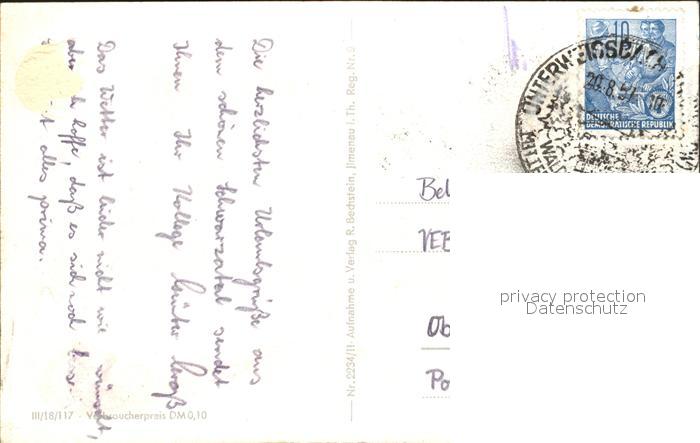 Die herzlichsten Urlaubsgrüße aus
dem schönen Schwarzatal sendet
Ihnen Ihr Kollege Günter Groß
Das Wetter ist leider nicht wie gewünscht,
aber ich hoffe, daß es sich noch
alles prima.
III/18/117 - Verbraucherpreis DM 0,10
Nr. 2234/11 - Aufnahme u. Verlag R. Bechstein, Ilmenau i. Th. Reg. Nr. 9
10
DEUTSCHE
DEMOKRATISCHE REPUBLIK
UNTERWEISSBACH
29.8.57
Bel
VEB
Ob
Po
privacy protection
Datenschutz